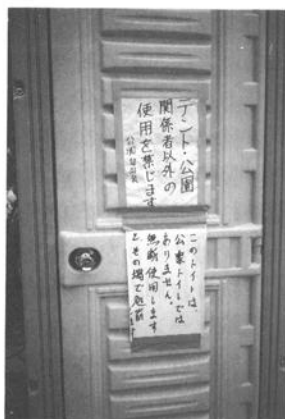 テント・公園
関係者以外の
使用を禁じます
このトイレは、
公衆トイレでは
ありません。
無断使用しますと
その場で処刑